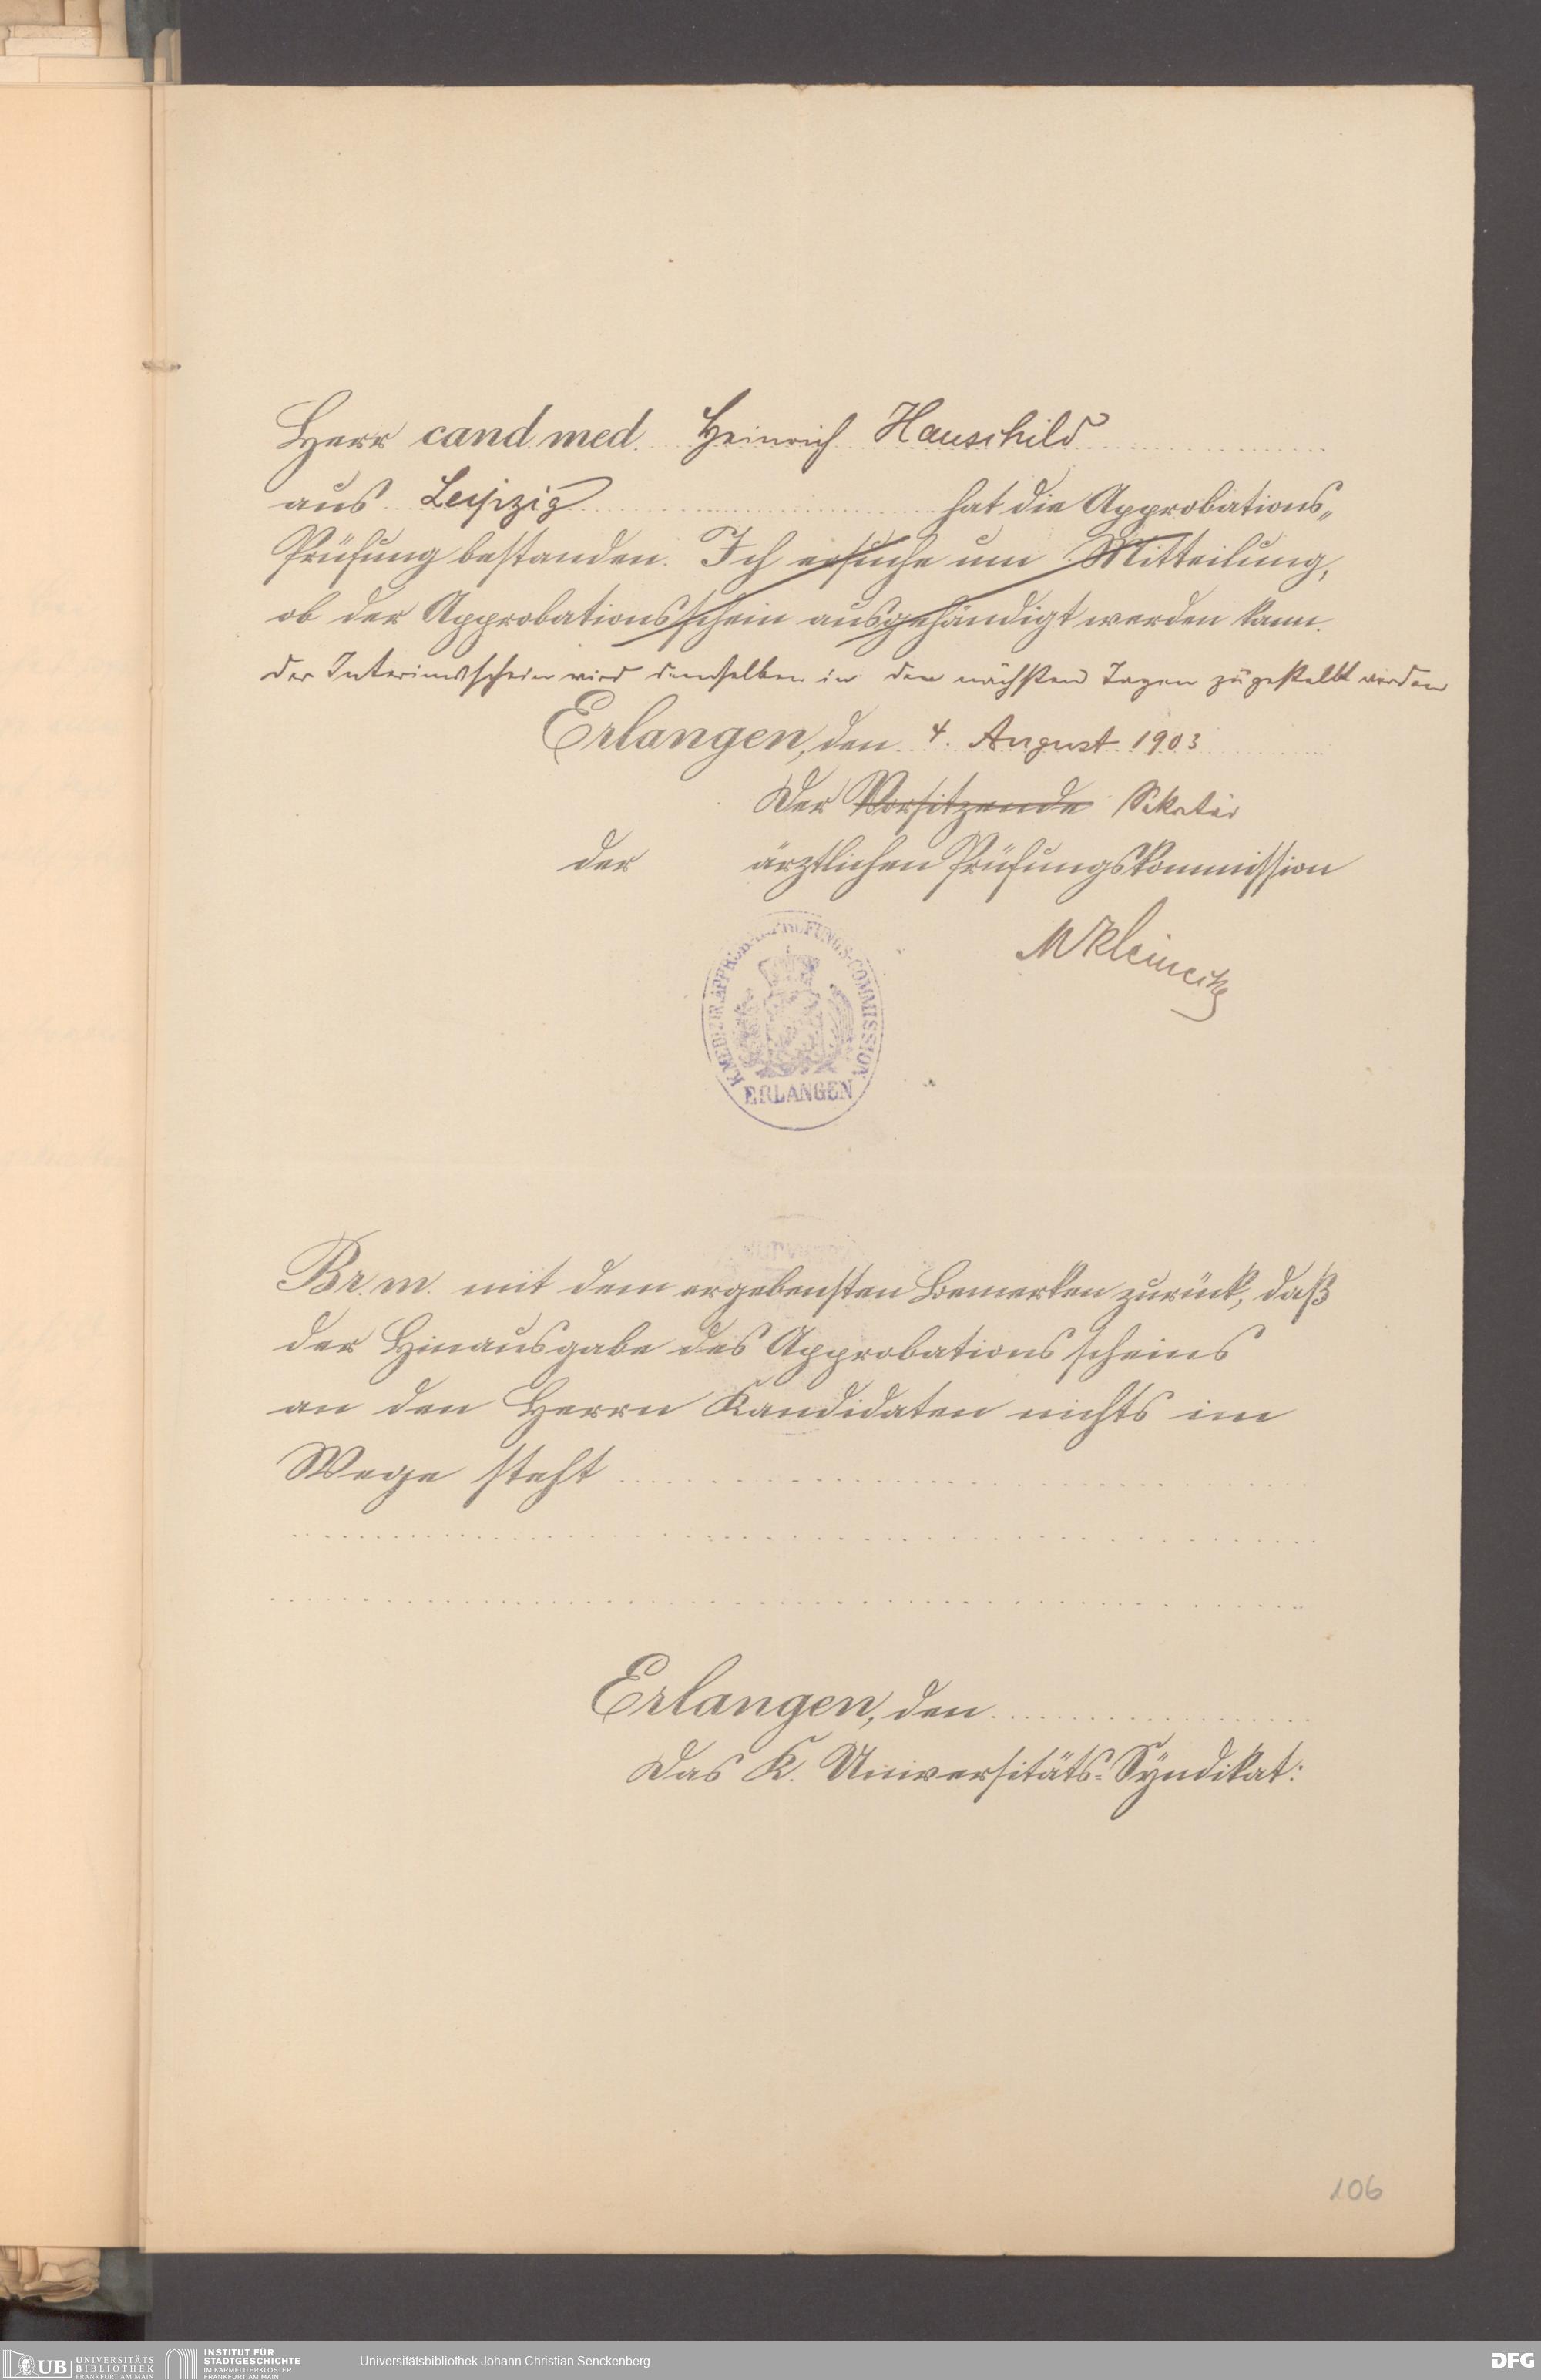 Herr cand. med. Heinrich Hauschild
aus Leipzig hat die Approbations„
Prüfung bestanden. Ich ersuche um Mitteilung,
ob der Approbationsschein ausgehändigt werden kann.
der Interimsschein wird demselben in den nächsten Tagen zugestellt werden
Erlangen, den 4. August 1903
Der Vorsitzende Sekretär
der ärztlichen Prüfungskommission
K. MEDIZIN. APPROBAT. PRÜFUNGS-COMMISSION
ERLANGEN
Br. m. mit dem ergebensten Bemerken zurück, daß
der Hinausgabe des Approbationsscheins
an den Herrn Kandidaten nichts im
Wege steht
Erlangen, den
Das K. Universitäts-Syndikat:
106
UB UNIVERSITÄTS
BIBLIOTHEK
FRANKFURT AM MAIN
INSTITUT FÜR
STADTGESCHICHTE
IM KARMELITERKLOSTER
FRANKFURT AM MAIN
Universitätsbibliothek Johann Christian Senckenberg
DFG